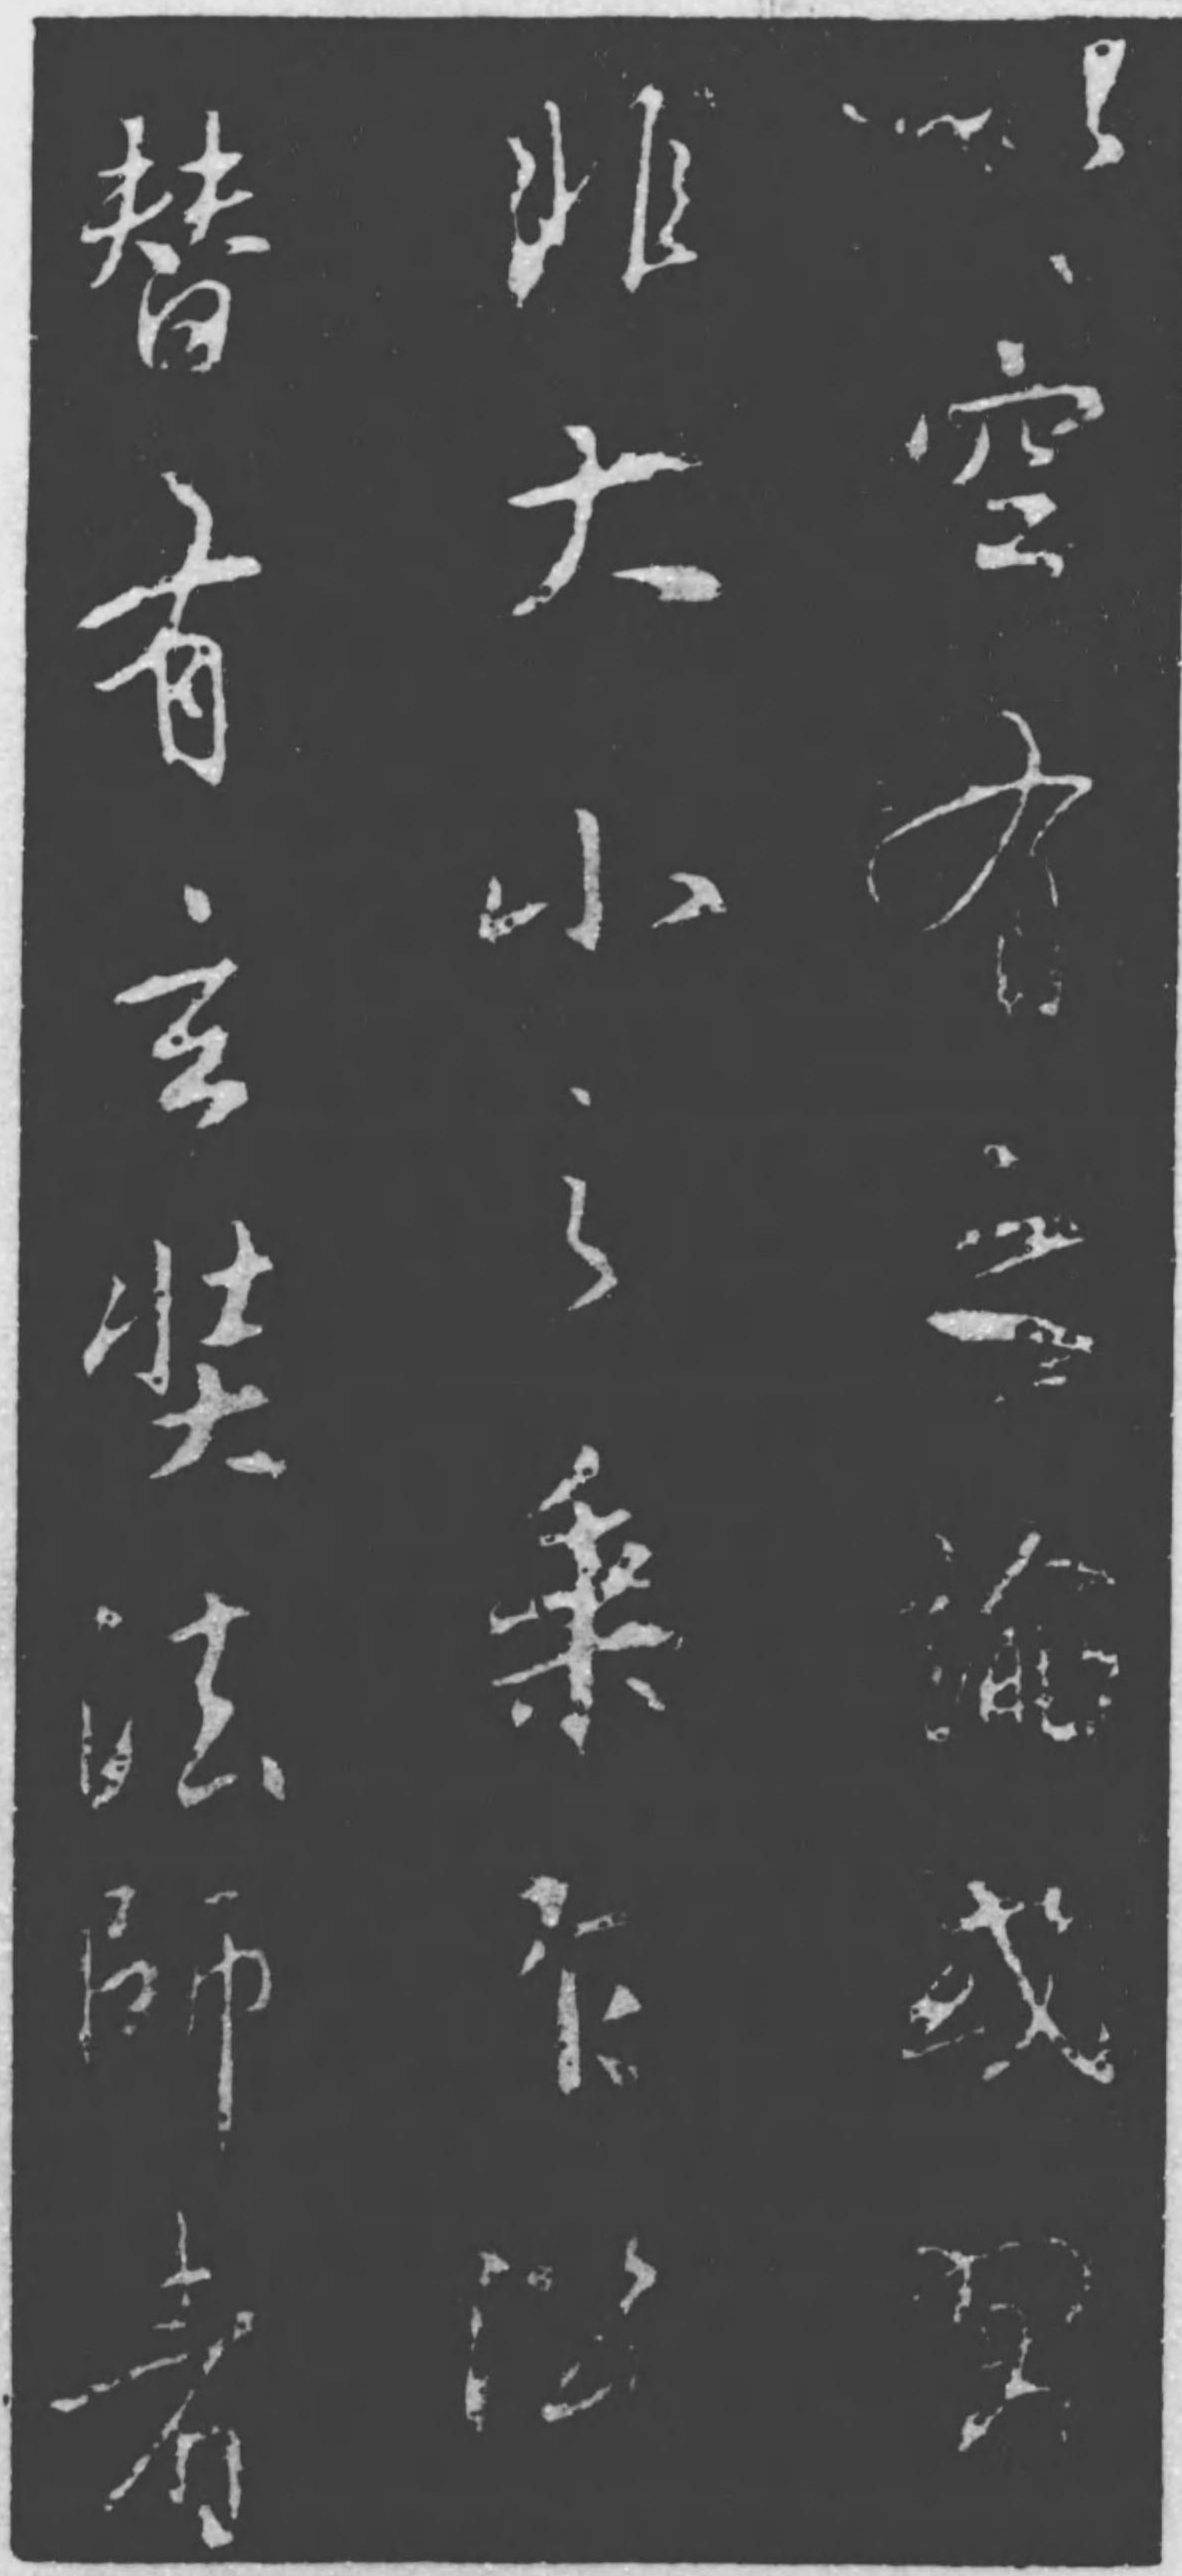 以空有之論或習
非大小之乘乍沿
替有玄奘法師者